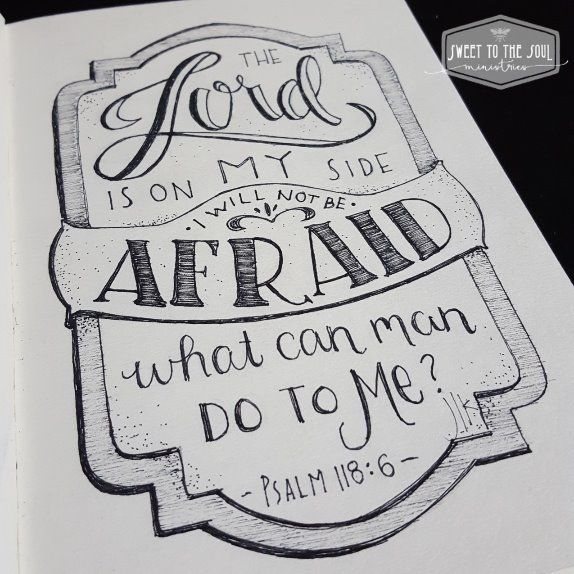 THE
Lord
IS ON MY SIDE
· I WILL NOT BE ·
AFRAID
what can man
DO TO Me?
JLK
- PSALM 118:6 -
SWEET TO THE SOUL
ministries